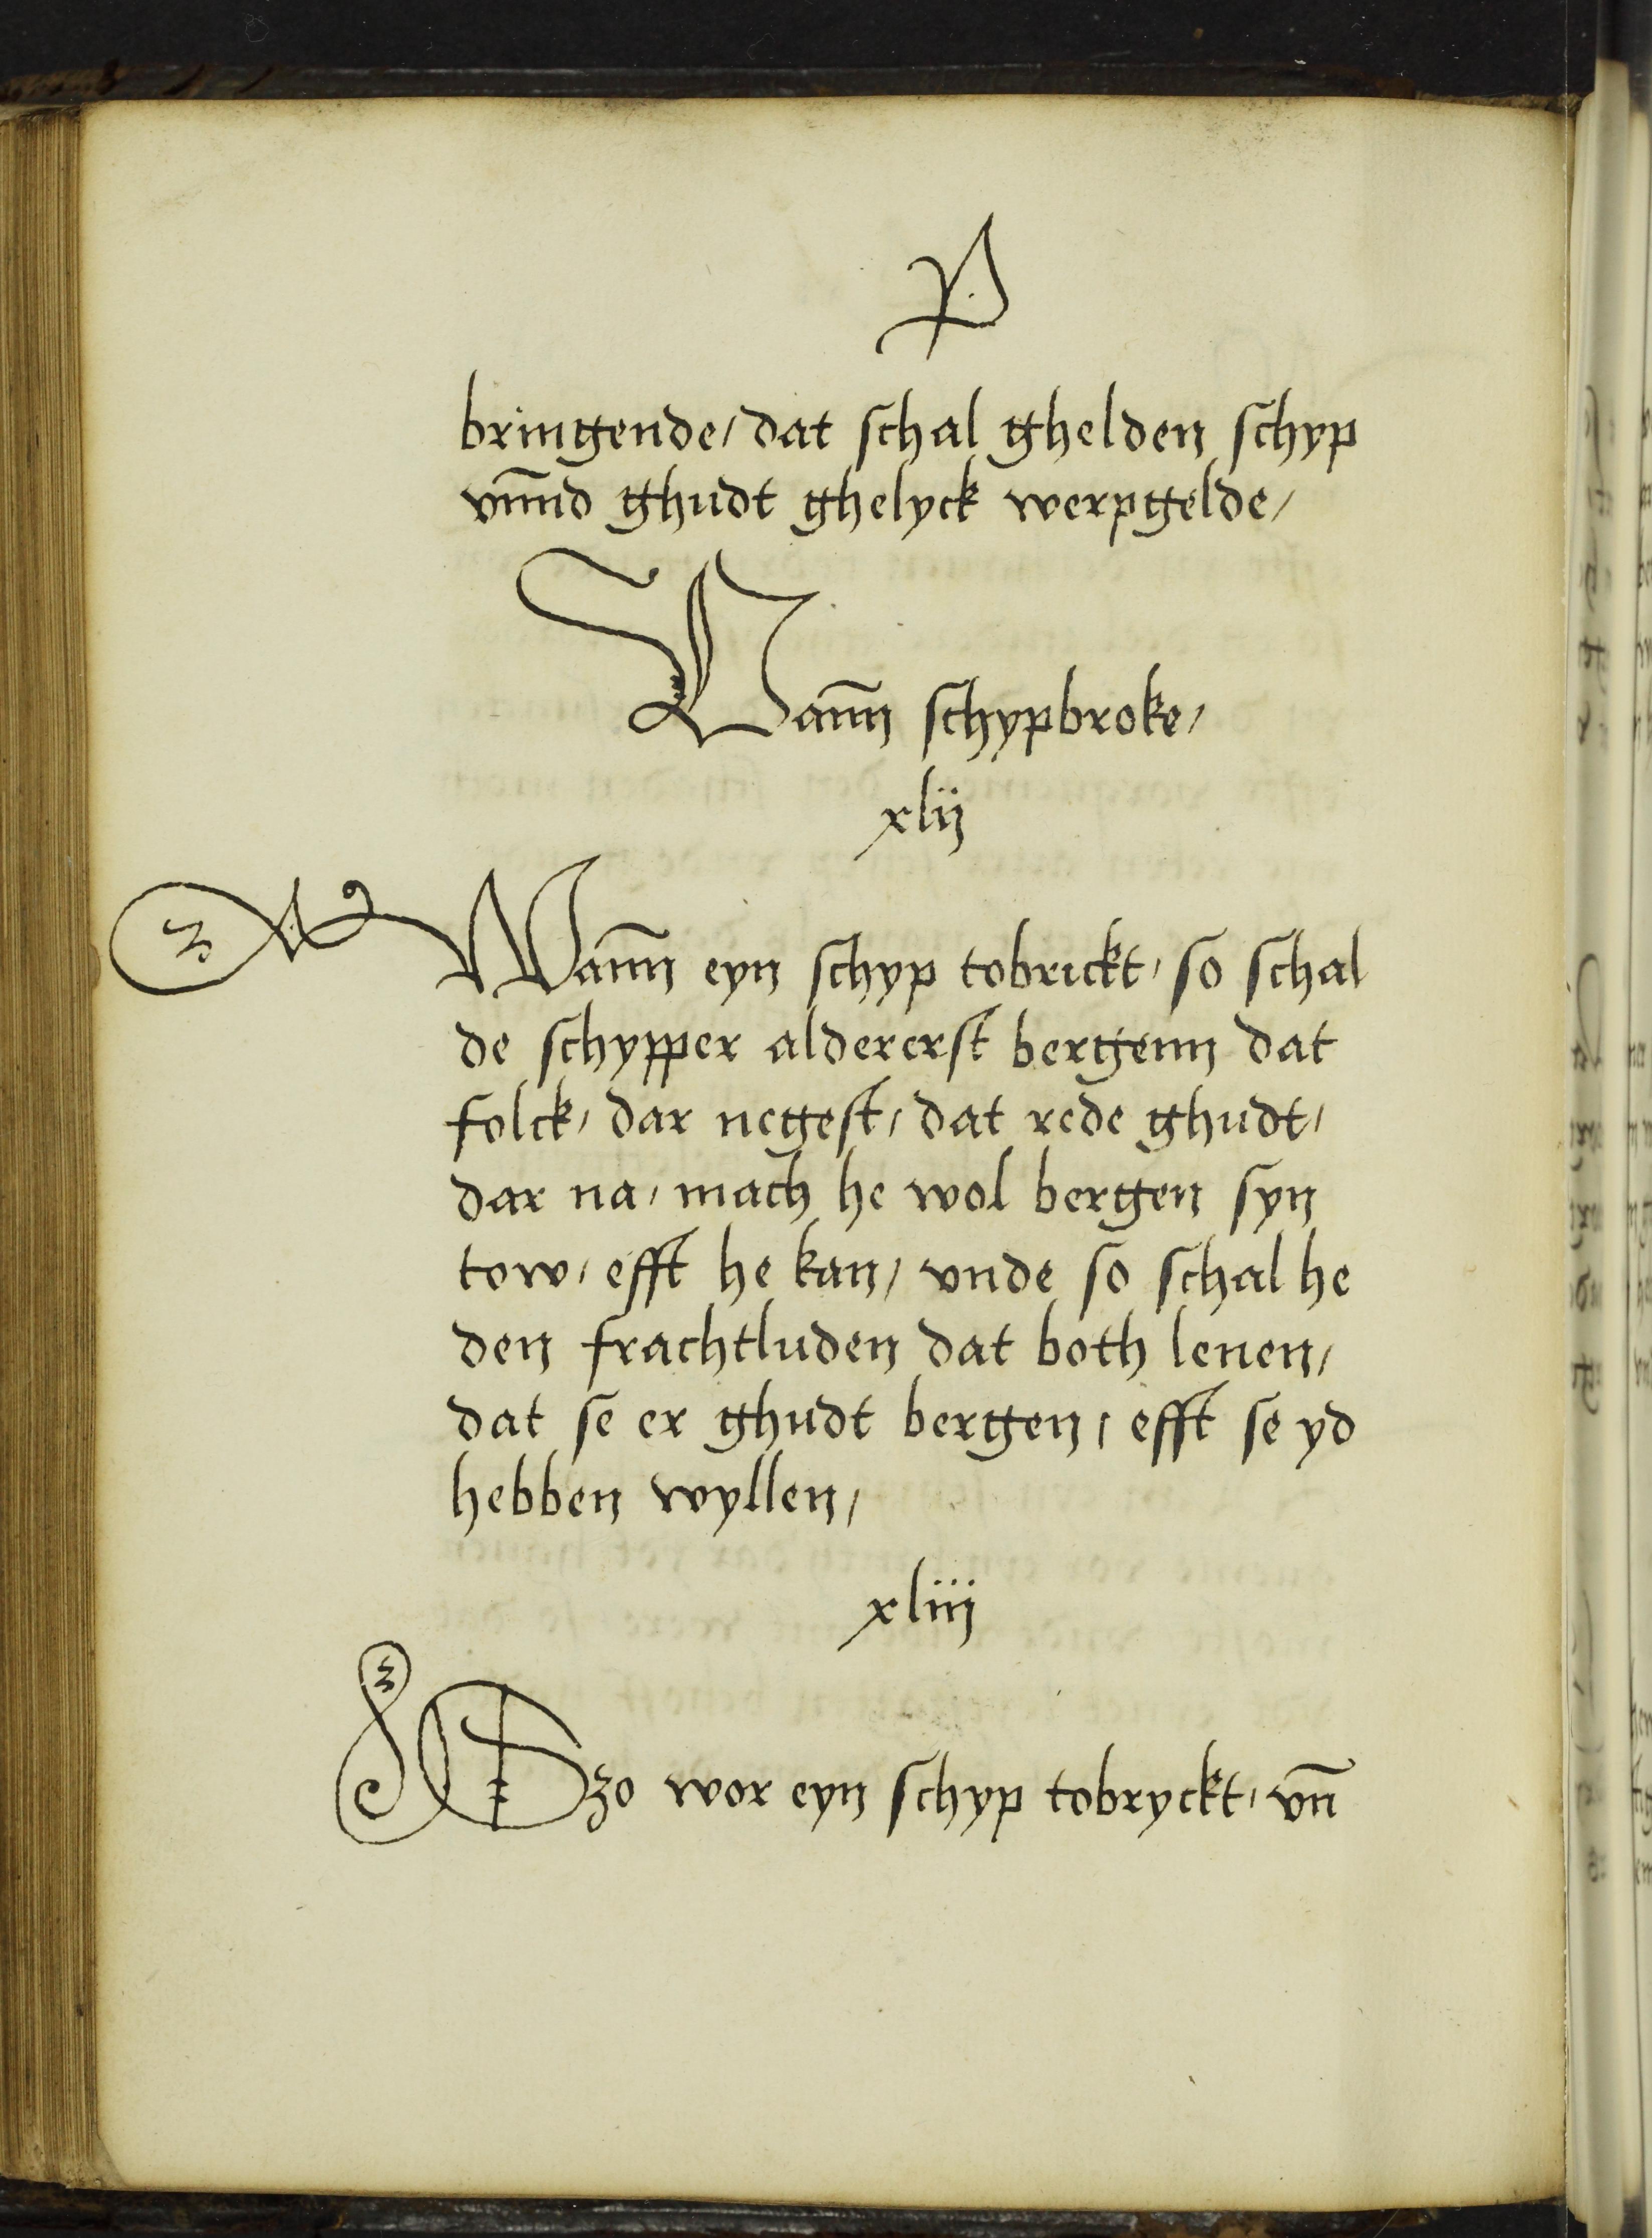 P
bringende/ dat schal ghelden schyp
vn̄nd ghudt ghelyck werpgelde/
Van̄n schypbroke/
xlij
Wan̄n eyn schyp tobrickt/ so schal
de schypper aldererst bergenn dat
folck/ dar negest/ dat rede ghudt/
dar na/ mach he wol bergen syn
tow/ efft he kan/ vnde so schal he
den frachtluden dat both lenen/
dat se er ghudt bergen/ efft se yd
hebben wyllen/
xliij
Szo wor eyn schyp tobryckt/ vn̄